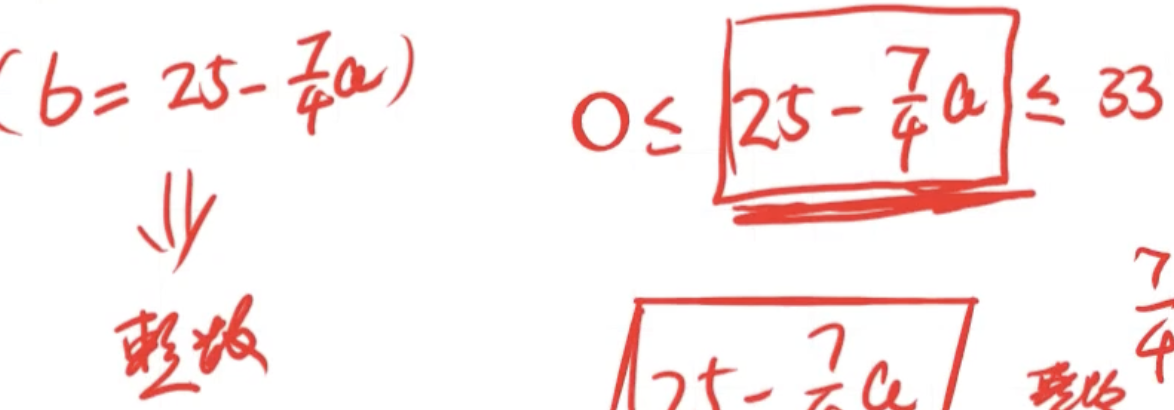 (b = 25 - 7/4 a)
0 ≤ 25 - 7/4 a ≤ 33
整数
25 - 7/ a
整数
7/4